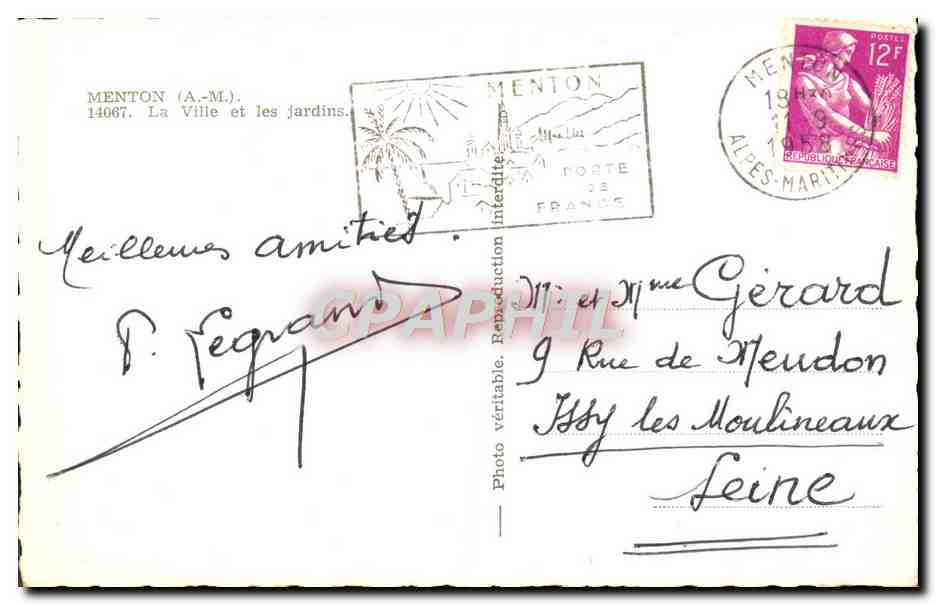 MENTON (A.-M.).
14067. La Ville et les jardins.
MENTON
PORTE
DE
FRANCE
MENTON
18H
9
1958
ALPES-MARITIMES
POSTES
12F
REPUBLIQUE FRANÇAISE
Meilleures amitiés.
P. Legrand
Photo véritable. Reproduction interdite
CPAPHIL
Mr et Mme Gérard
9 Rue de Meudon
Issy les Moulineaux
Seine